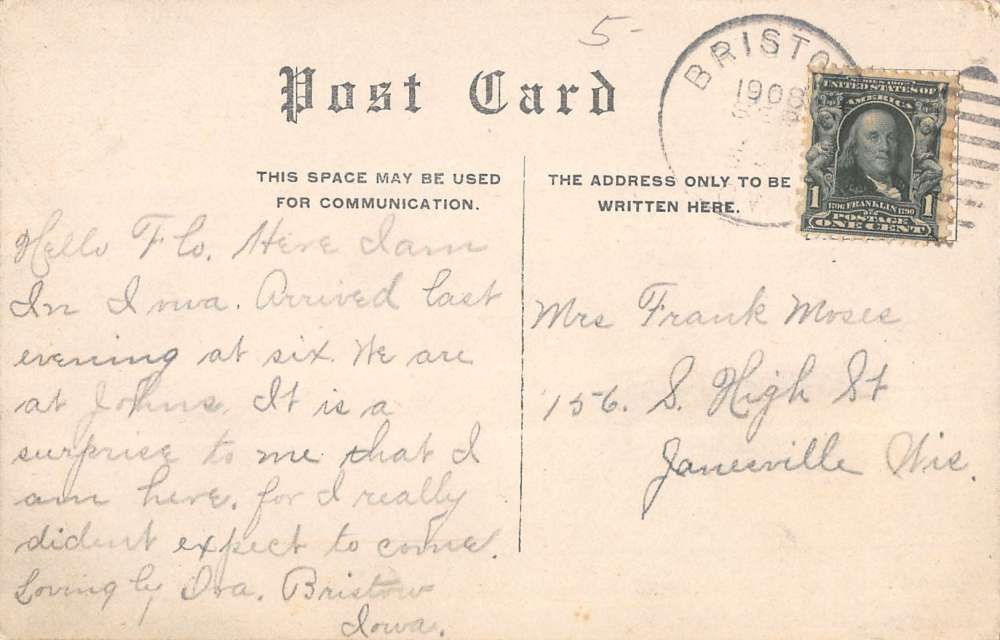 5-
Post Card
BRISTO
1908
SERIES 1902
UNITED STATES OF
AMERICA
1 1
1706 FRANKLIN 1790
POSTAGE
ONE CENT
THIS SPACE MAY BE USED
FOR COMMUNICATION.
Hello Flo. Here I am
In Iowa. Arrived last
evening at six. We are
at Johns. It is a
surprise to me that I
am here, for I really
dident expect to come.
Lovingly Ora. Bristow
Iowa.
THE ADDRESS ONLY TO BE
WRITTEN HERE.
Mrs Frank Moses
156. S. High St
Janesville Wis.